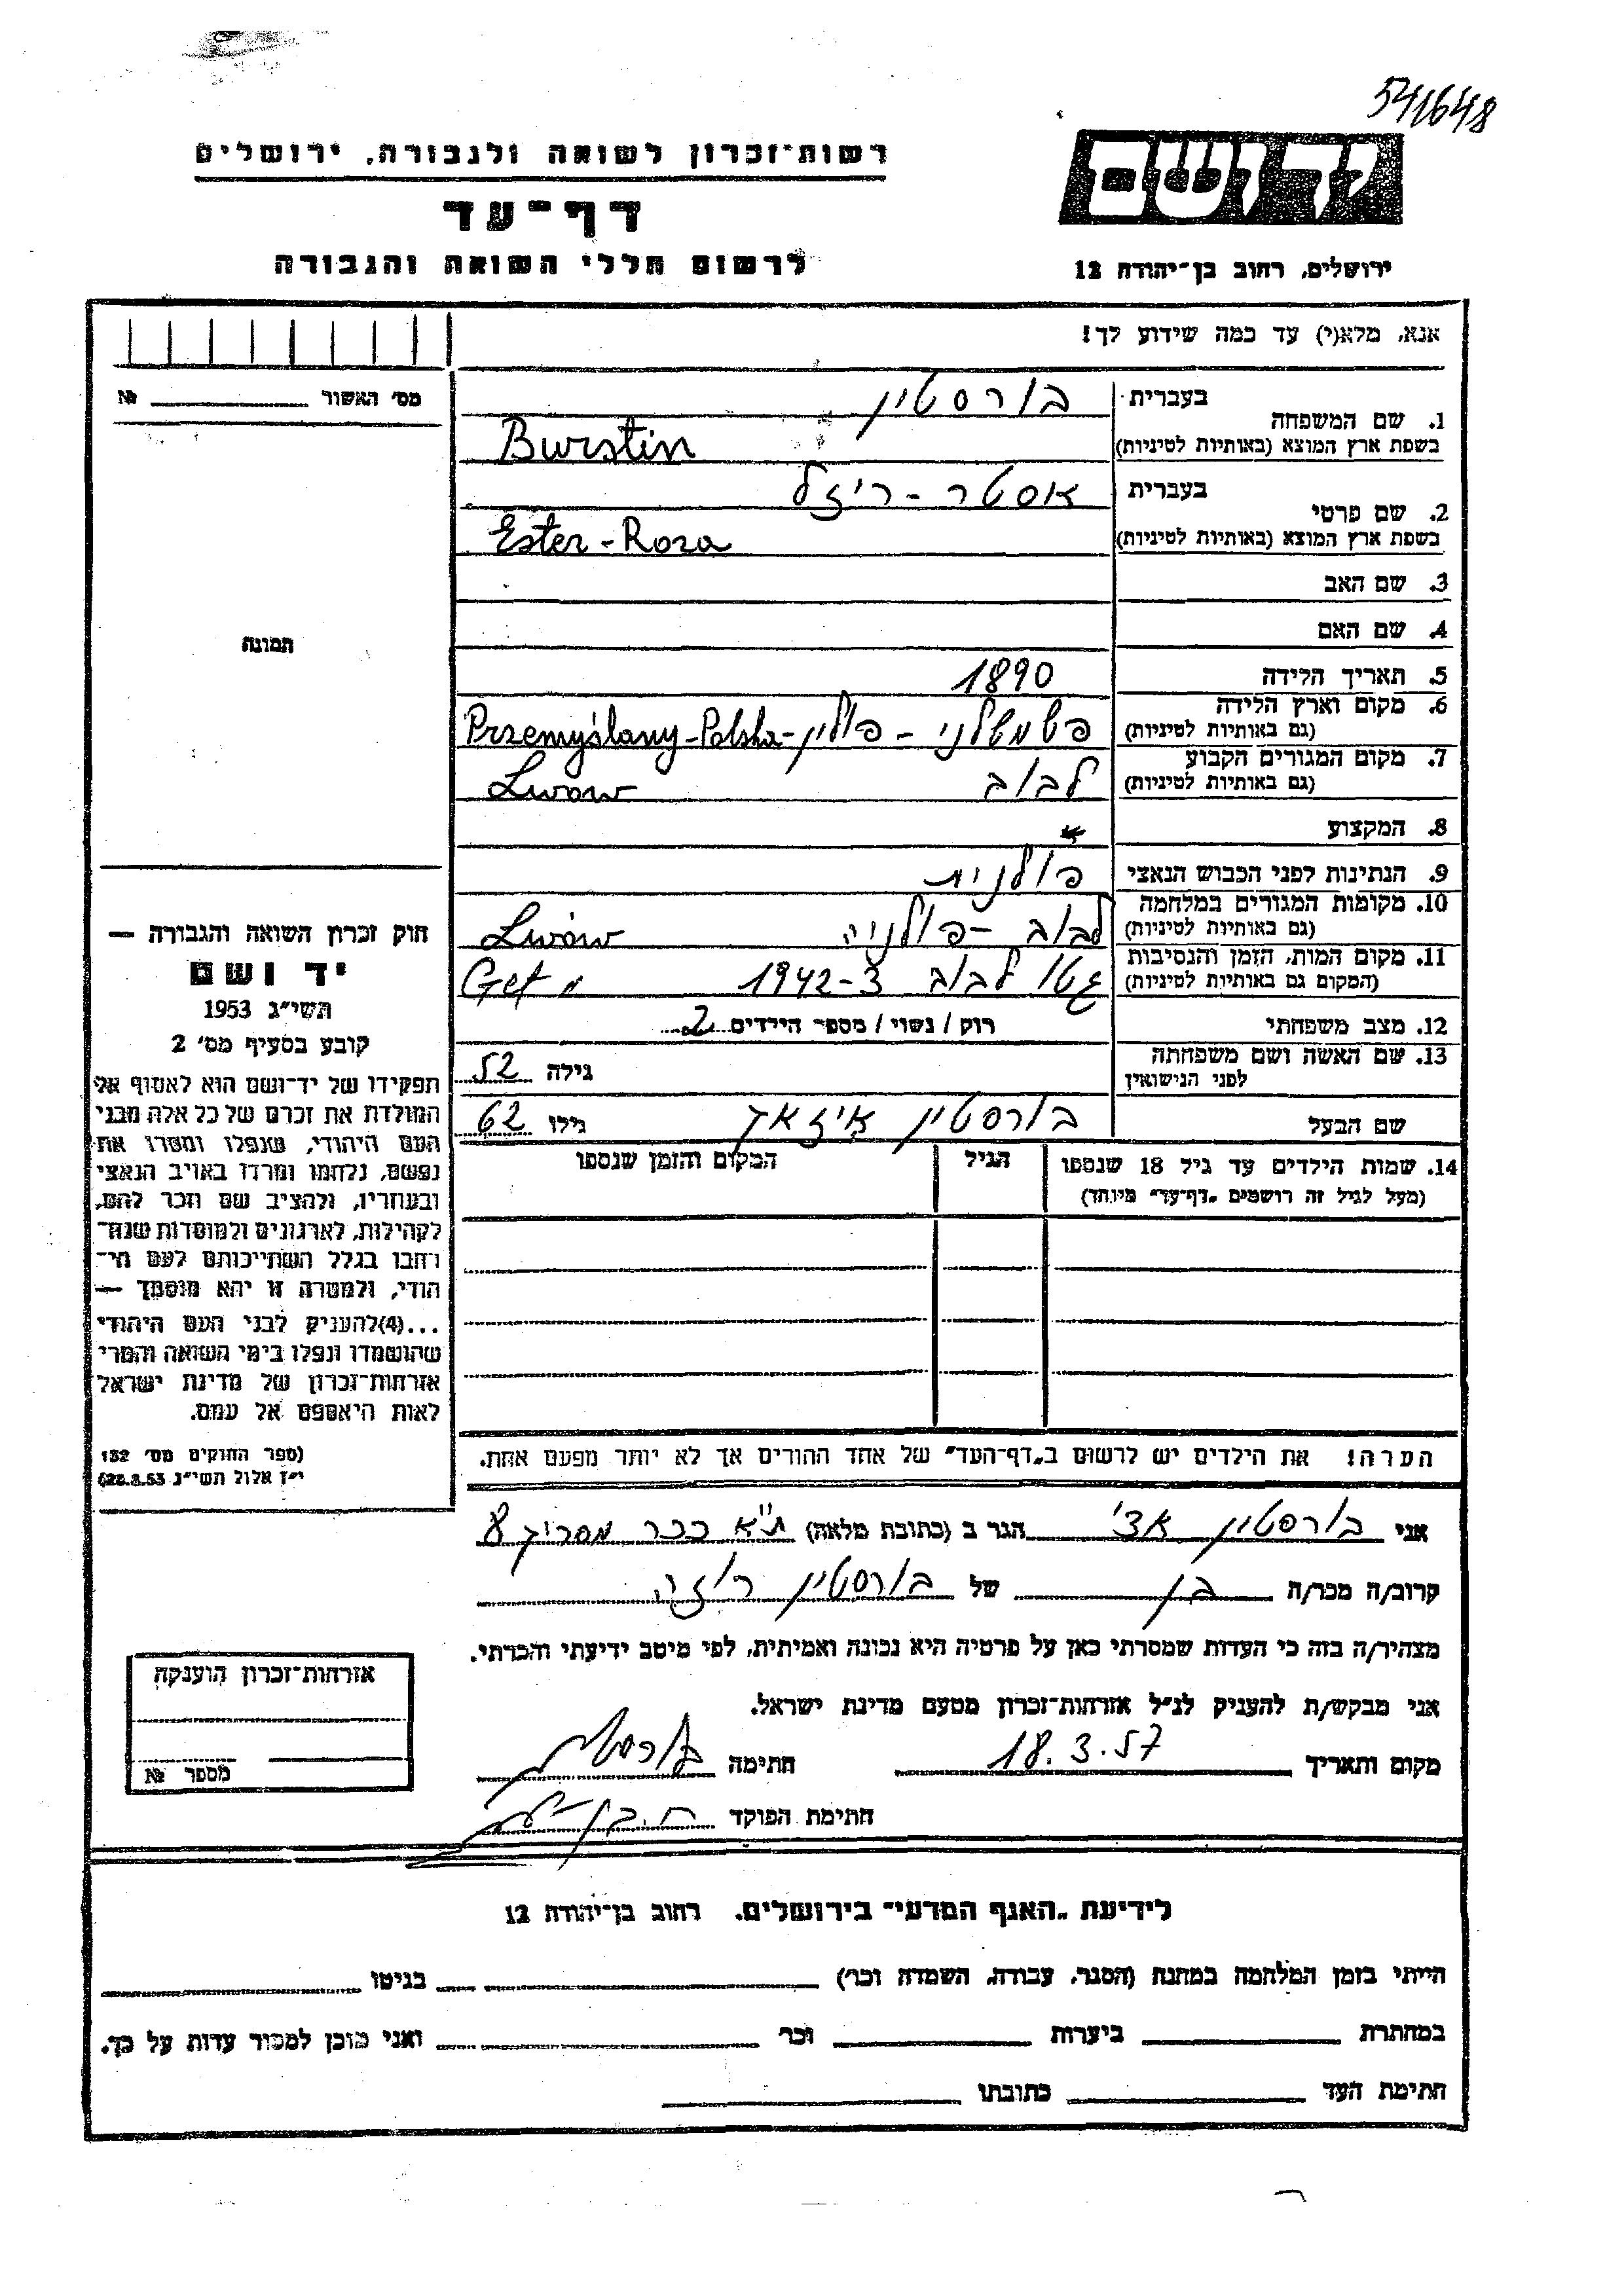 541648
יד ושם
רשות־זכרון לשואה ולגבורה, ירושלים
דף־עד
לרשום חללי השואה והגבורה
ירושלים, רחוב בן־יהודה 12
אנא, מלא(י) עד כמה שידוע לך!
מס׳ האשור №
תמונה
1. שם המשפחה בעברית בורסטין
בשפת ארץ המוצא (באותיות לטיניות) Burstin
2. שם פרטי בעברית אסטר - ריזל
בשפת ארץ המוצא (באותיות לטיניות) Ester - Roza
3. שם האב
4. שם האם
5. תאריך הלידה 1890
6. מקום וארץ הלידה (גם באותיות לטיניות) פשמשלני - פולין - Przemyślany - Polska
7. מקום המגורים הקבוע (גם באותיות לטיניות) לבוב Lwow
8. המקצוע
9. הנתינות לפני הכבוש הנאצי פולנית
10. מקומות המגורים במלחמה (גם באותיות לטיניות) לבוב - פולניה Lwów
11. מקום המות, הזמן והנסיבות (המקום גם באותיות לטיניות) גטו לבוב 1942-3 Get
12. מצב משפחתי רוק / נשוי / מספר הילדים 2
13. שם האשה ושם משפחתה לפני הנישואין גילה 52
שם הבעל בורסטין איזאק גילו 62
14. שמות הילדים עד גיל 18 שנספו הגיל המקום והזמן שנספו
(מעל לגיל זה רושמים „דף־עד״ מיוחד)
הערה! את הילדים יש לרשום ב„דף־העד״ של אחד ההורים אך לא יותר מפעם אחת.
חוק זכרון השואה והגבורה —
יד ושם
תשי״ג 1953
קובע בסעיף מס׳ 2
תפקידו של יד־ושם הוא לאסוף אל
המולדת את זכרם של כל אלה מבני
העם היהודי, שנפלו ומסרו את
נפשם, נלחמו ומרדו באויב הנאצי
ובעוזריו, ולהציב שם וזכר להם,
לקהילות, לארגונים ולמוסדות שנח־
רבו בגלל השתייכותם לעם הי־
הודי, ולמטרה זו יהא מוסמך —
...(4)להעניק לבני העם היהודי
שהושמדו ונפלו בימי השואה והמרי
אזרחות־זכרון של מדינת ישראל
לאות היאספם אל עמם.
(ספר החוקים מס׳ 132
י״ז אלול תשי״ג 28.8.53)
אני בורסטין אצ׳ הגר ב (כתובת מלאה) ת״א ככר מסריק 8
קרוב/ה מכר/ה בן של בורסטין רוזה
מצהיר/ה בזה כי העדות שמסרתי כאן על פרטיה היא נכונה ואמיתית, לפי מיטב ידיעתי והכרתי.
אני מבקש/ת להעניק לנ״ל אזרחות־זכרון מטעם מדינת ישראל.
מקום ותאריך 18.3.57 חתימה בורסטין
חתימת הפוקד
אזרחות־זכרון הוענקה
מספר №
לידיעת „האגף המדעי״ בירושלים. רחוב בן־יהודה 12
הייתי בזמן המלחמה במחנה (הסגר, עבודה, השמדה וכו׳) בגיטו
במחתרת ביערות וכו׳ ואני מוכן למסור עדות על כך.
חתימת העד כתובתו